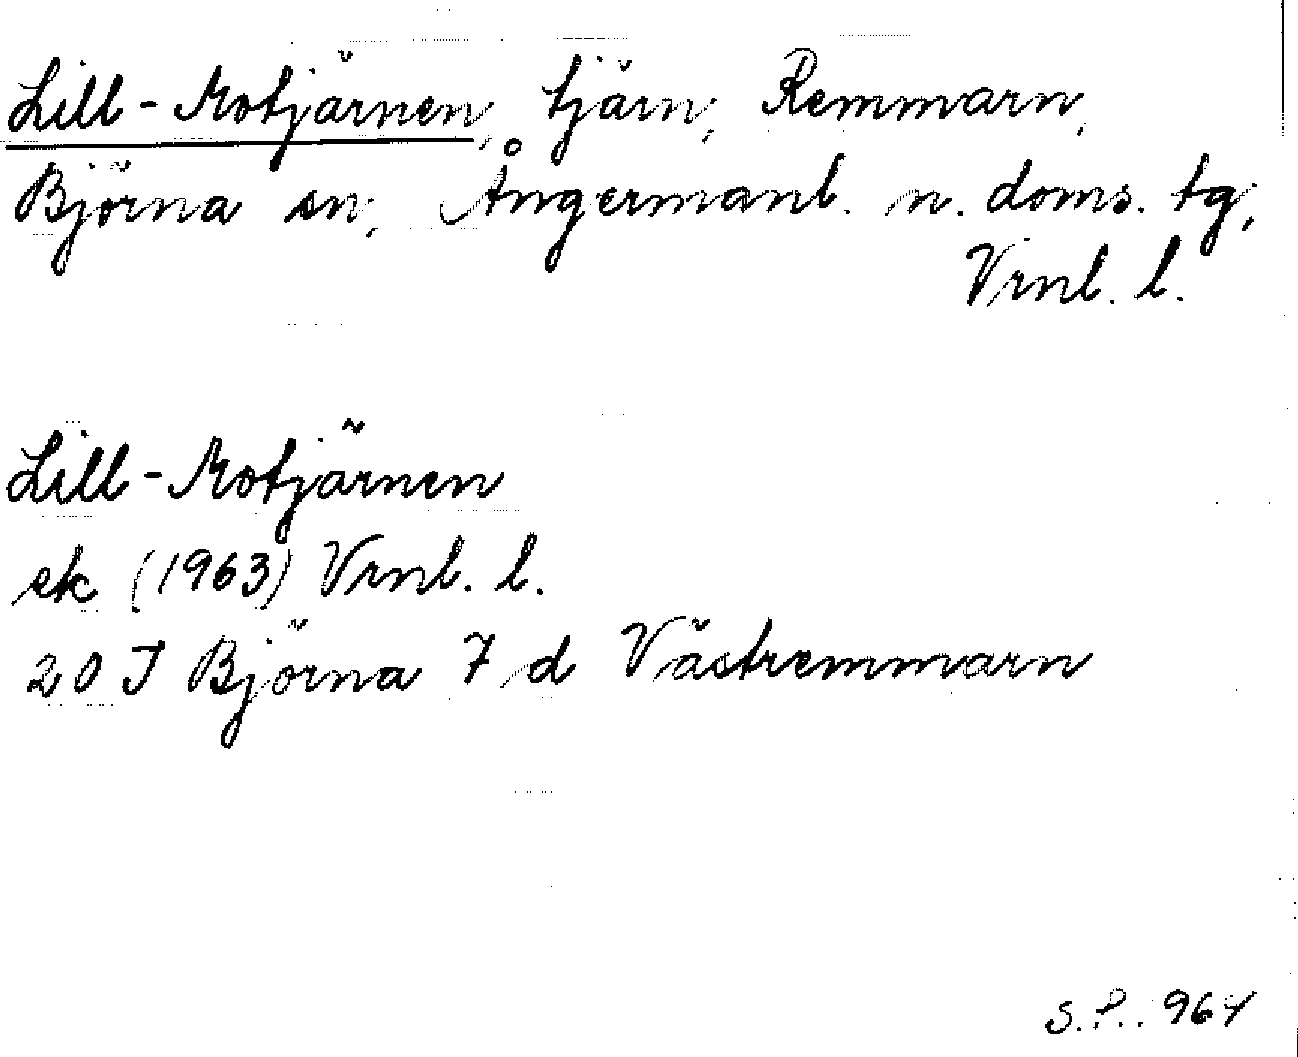 Lill-Motjärnen, tjärn, Remmarn,
Björna sn, Ångermanl. n. doms. tg,
Vrnl. l.
Lill-Motjärnen
ek (1963) Vrnl. l.
20 J Björna 7 d Västremmarn
S.P.. 964